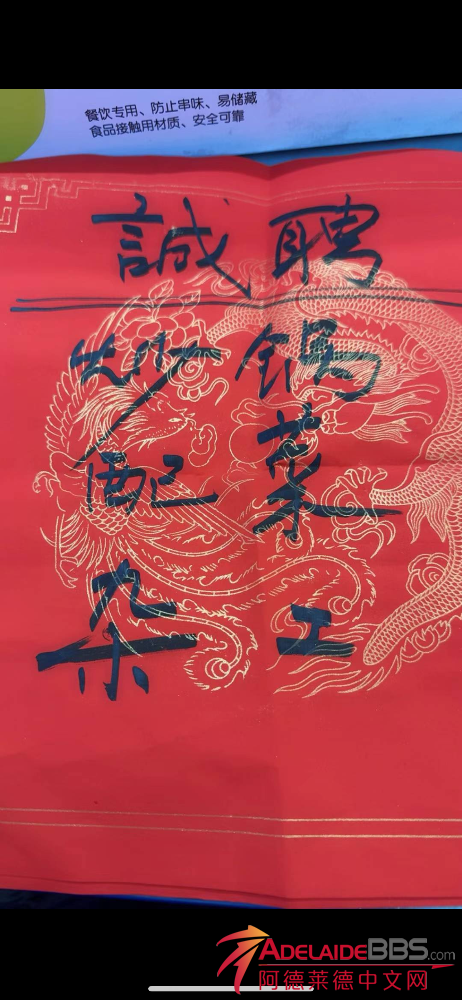 餐饮专用、防止串味、易储藏
食品接触用材质、安全可靠
誠聘
炒锅
配菜
杂工
ADELAIDEBBS.com
阿德莱德中文网